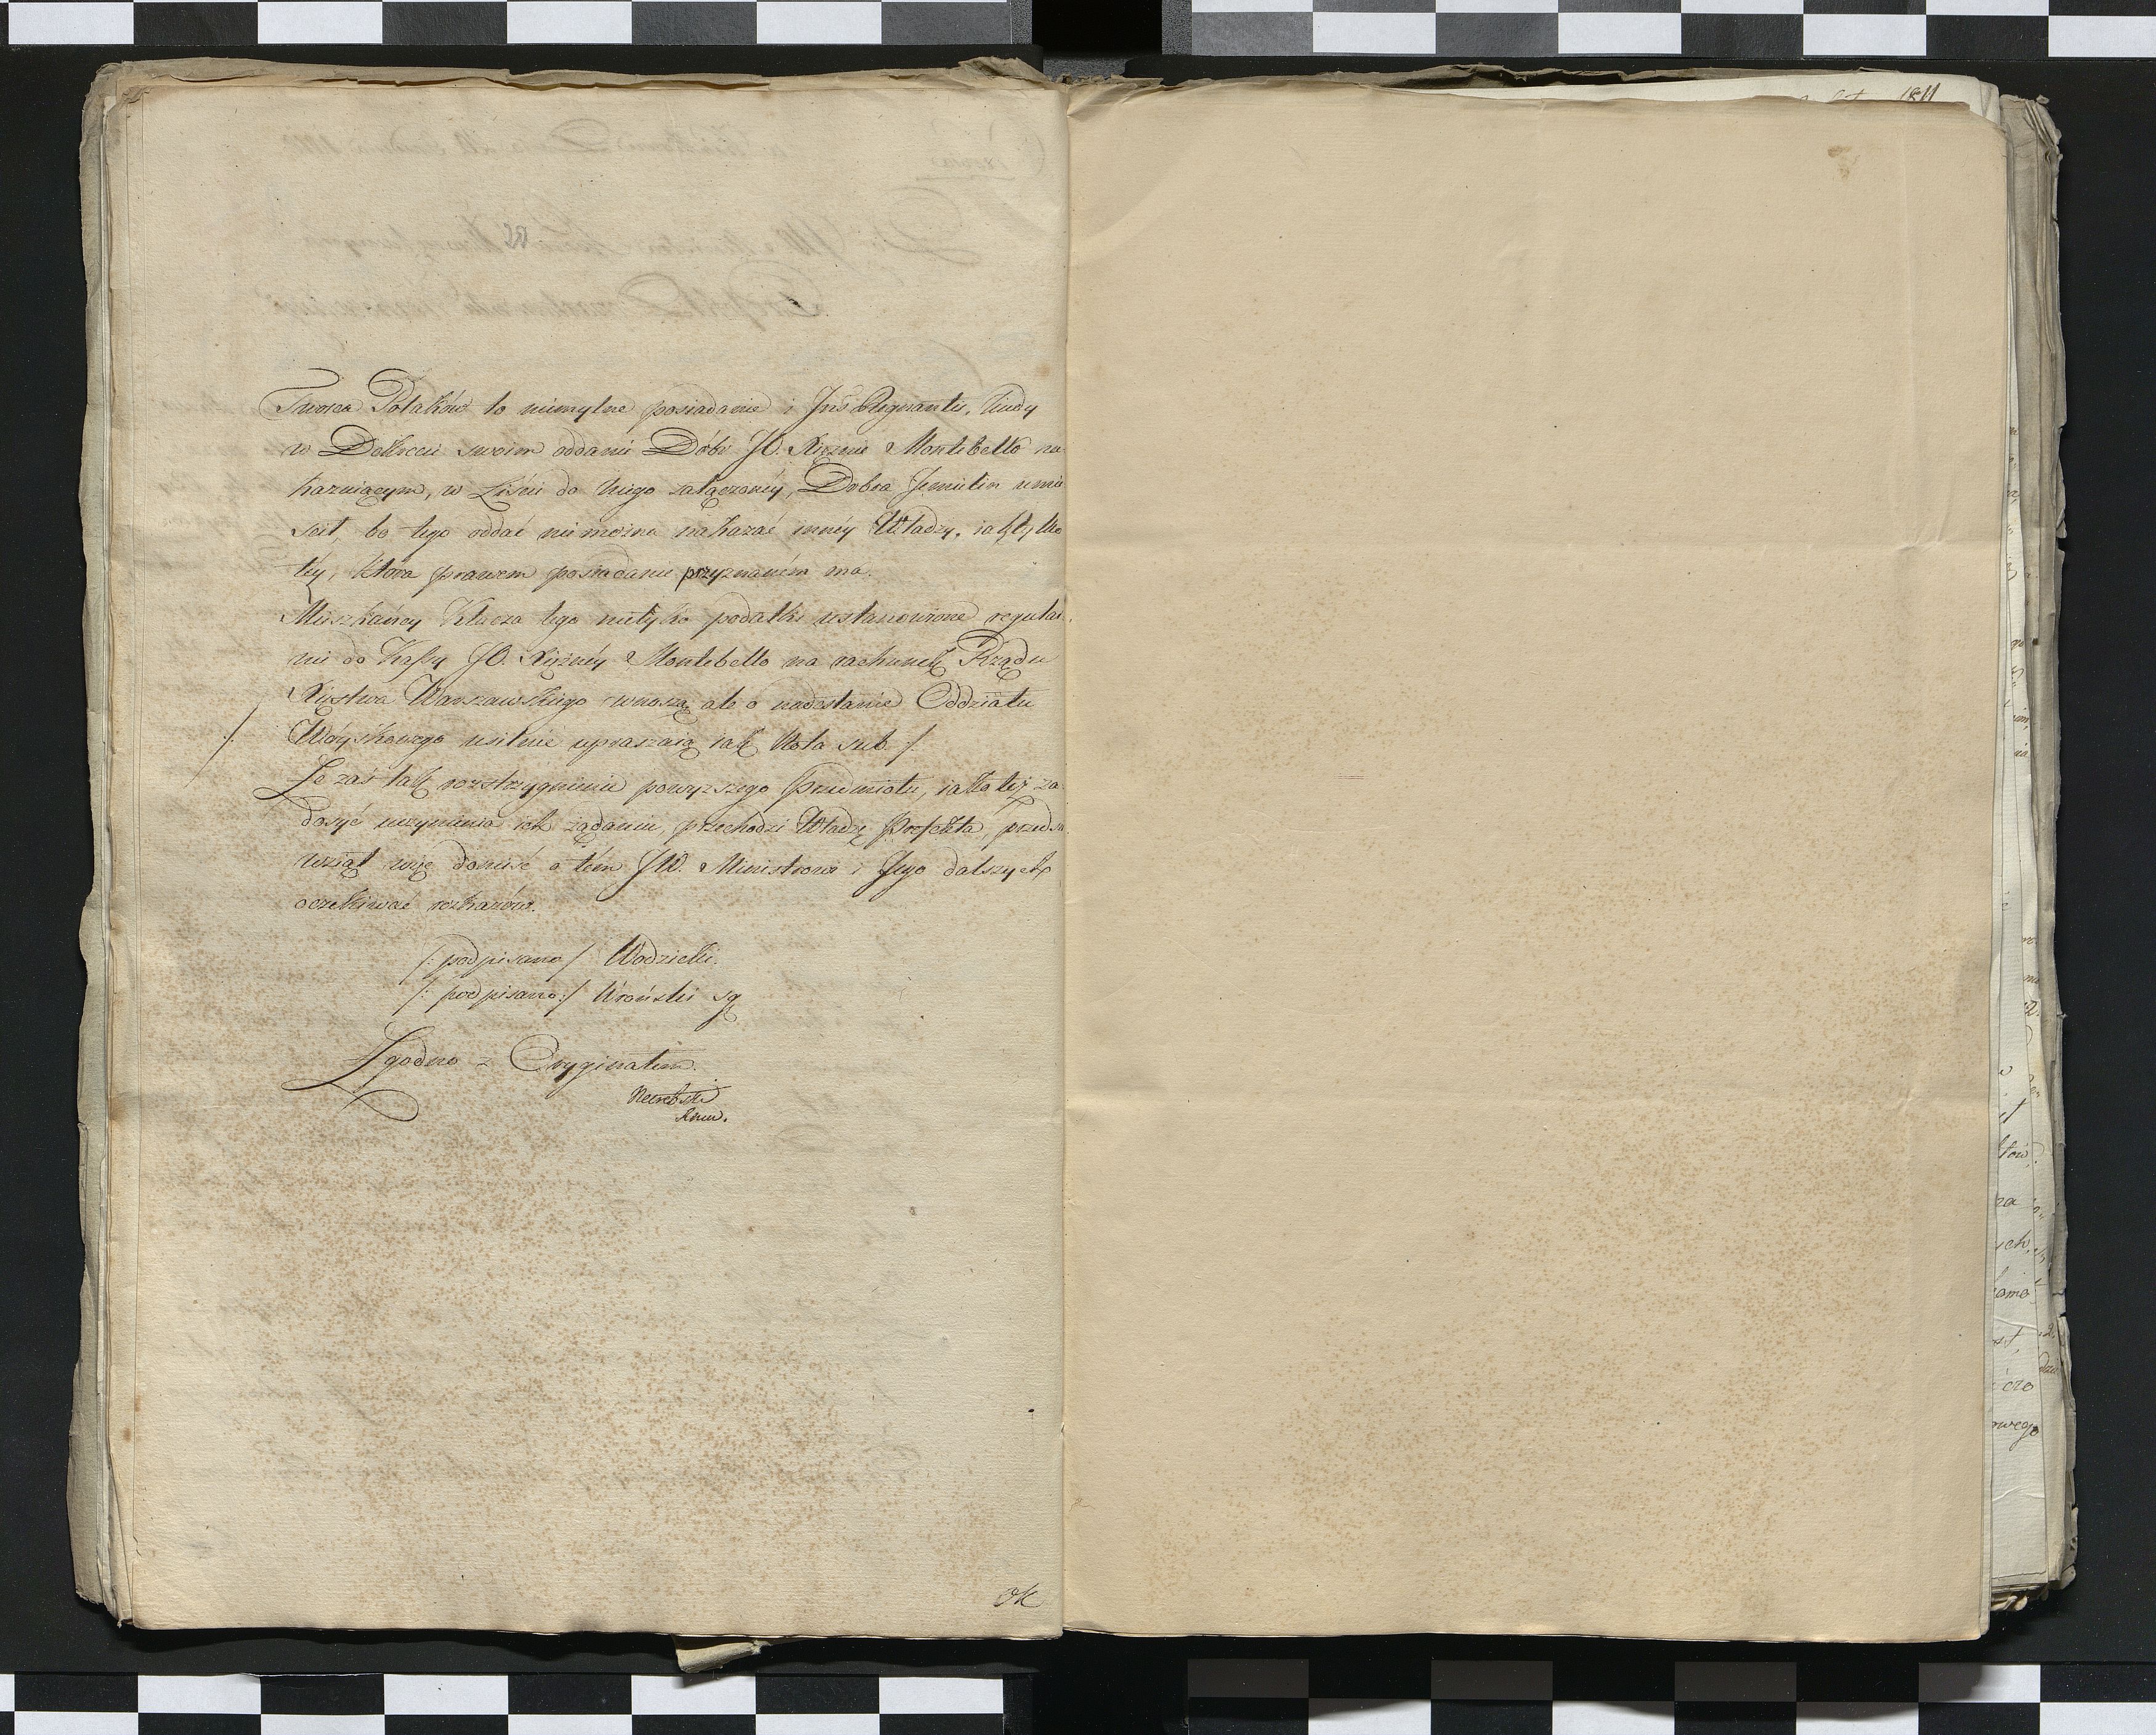 Twórca Polaków to niemylne posiadanie i Jus Regnantis, kiedy
w Dekrecie swoim oddanie Dóbr JO. Xiężnie Montebello na-
kazuiącym, w Liście do niego załączonéy, Dobra Jemielin umie
scił, bo tego oddać niemożna nakazać innéy Władzy, iak tylko
téy, która prawem posiadanie przyznaném ma.
Mieszkańcy Klucza tego nietylko podatki ustanowione regular-
nie do Kassy JO. Xiężnéy Montebello na rachunek Rządu
Xięstwa Warszawskiego wnoszą, ale o nadesłanie Oddziału
Woyskowego usilnie upraszaią iak Nota sub ./.
Ze zaś tak rozstrzygnienie powyższego Przedmiotu, iako też za-
dosyć uczynienia ich żądaniu, przechodzi Władzę Prefekta, przedsię
wziął więc donieść o tém JW. Ministrowi i Jego dalszych
oczekiwać rozkazów.
/: podpisano / Wodzicki.
/: podpisano :/ Wroński sg
Zgodno z Oryginałem.
ok
1811